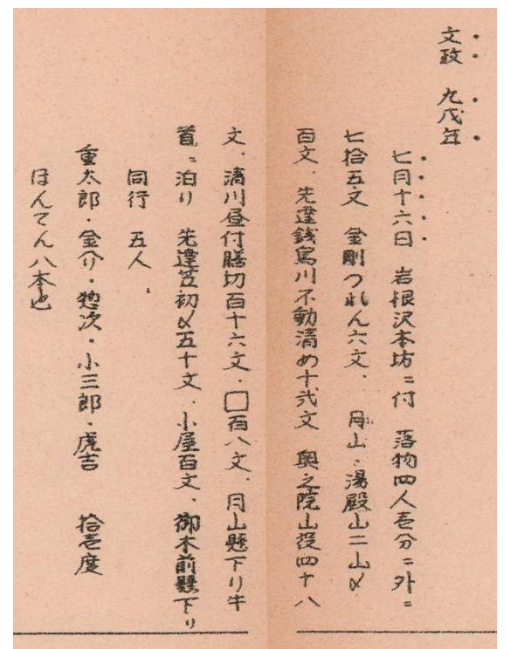 文政 九戌年
七月十六日 岩根沢本坊ニ付 落物四人壱分ニ外ニ
七拾五文 金剛つれん六文、月山・湯殿山二山〆
百文、先達銭鳥川不動清め十弐文 奥之院山役四十八
文、清川昼付膳切百十六文、□百八文、月山懸下り牛
首ニ泊り 先達笠初〆五十文、小屋百文、御木前懸下り
同行 五人、
重太郎・金介・惣次・小三郎・虎吉 拾壱度
ほんてん八本也